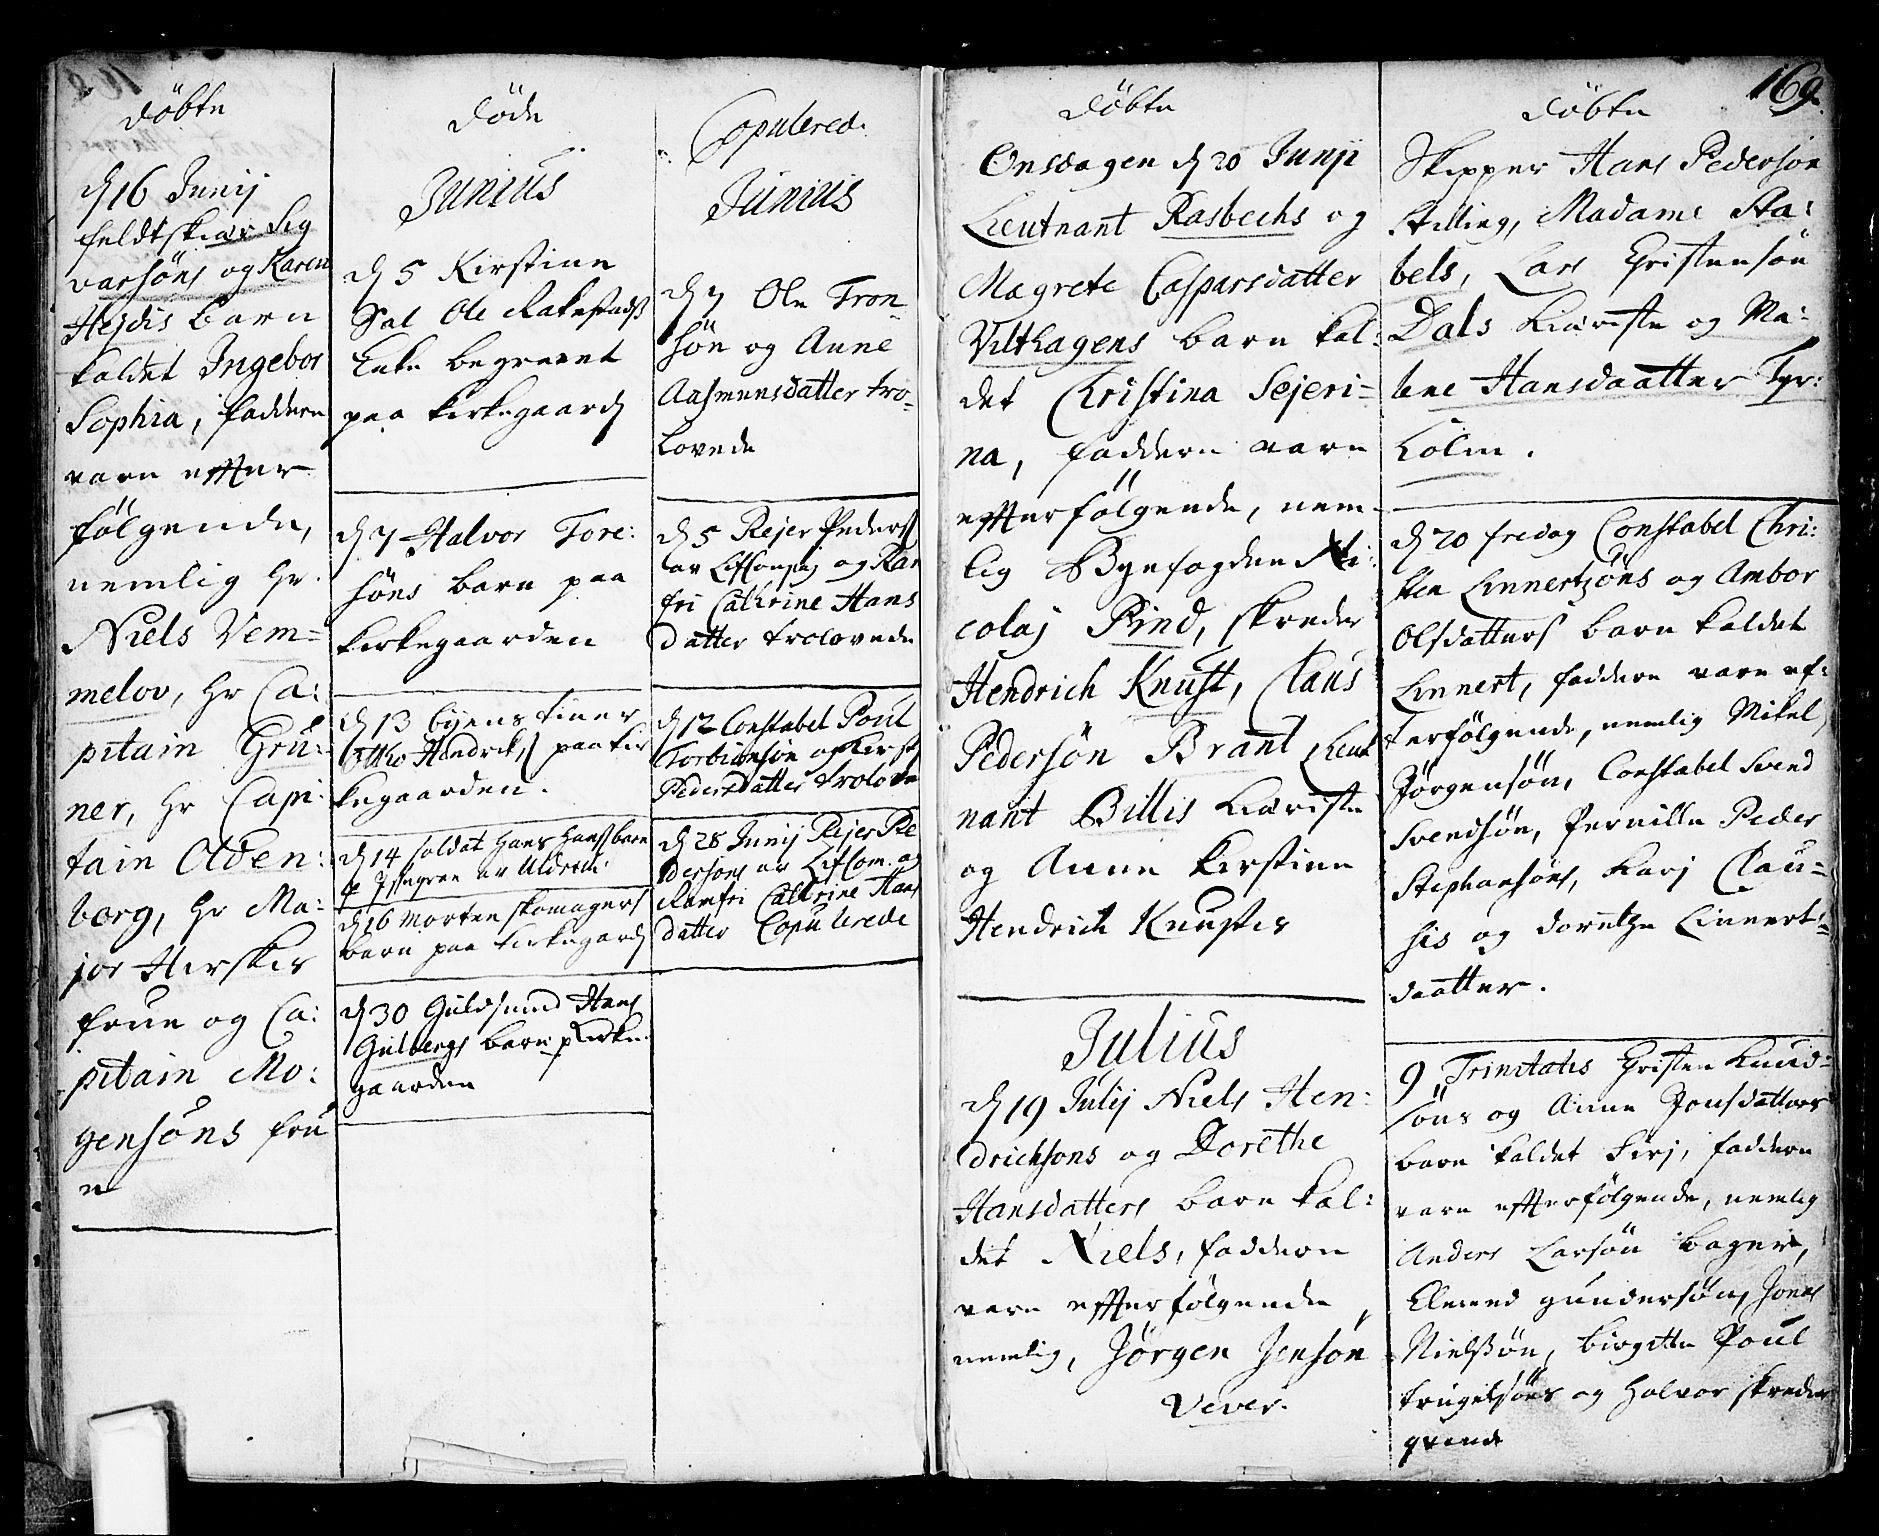 Döbte
d 16 Junij
feldtskiær Sig
varsöns og Karen
Hejdis barn
kaldet Ingebor
Sophia, faddern
vare effter
fölgende,
nemlig Hr
Niels Vem=
melov, Hr Ca:
pitain Grü:
ner, Hr Capi:
tain Olden:
borg, Hr Ma:
jor Herskes
frue og Ca:
pitain Mo:
gensöns fru
e
Döde
Junius
d 5 Kirstine
Sal Ole Rakestads
Enke begravet
paa kirkegaard
d 7 Halvor Tore:
söns barn paa
kirkegaarden
d 13 byens tiener
Otto Hendriks paa kir
kegaarden.
d 14 soldat Hans Hans barn
d 16 Morten skomagers
barn paa kirkegaard
d 30 Guldsmed Hans
Gulbergs barn p kirke
gaarden
Copulered.
Junius
d 7 Ole Tron=
sön og Anne
Aasmunsdatter tro=
lovede
d 5 Rejer Peders
av Lifcompag og Ran
fri Cathrine Hans
datter trolovede
d 12 Constabel Poul
Torbiörnsön og Kirst
Pedersdatter trolovede
d 28 Junij Rejer Pe
dersons av Lifcom. og
Ramfri Cathrine Hans
datter Copulerede
Döbte
Onsdagen d 20 Junij
Lieutnant Rasbechs og
Magrete Casparsdatter
Vilthagens barn kal:
det Christina Sejeri=
na, faddern vare
effterfölgende, nem=
lig Byefogden Ni:
colaj Pind, skreder
Hendrich Knust, Claus
Pedersön Brant Lieut
nant Billis Kiæreste
og Anne Kirstine
Hendrich Knustes
Julius
d 19 Julij Niels Hen:
drichsons og Dorethe
Hansdatters barn kal:
det Niels, faddern
vare effterfölgende,
nemlig, Jörgen Jensön
Vever.
169.
Döbte
Skipper Hans Pedersön
Stilling, Madame Sta:
bels, Lars Christensön
Dals Kiæreste og Ma=
lene Hansdaatter Tyr:
holm.
d 20 fredag Constabel Chri:
sten Linnertsöns og Ambor
Olsdatters barn kaldet
Linnert, faddern vare ef=
terfölgende, nemlig Mikel
Jörgensön, Constabel Svend
Svendsön, Pernille Peder
Stephansöns, Karj Clau=
sis og Dorethe Linnert=
daatter.
9 Trinitatis Christen Knud=
söns og Anne Jonsdatters
barn kaldet Sirj, faddern
vare effterfölgende, nemlig
Anders Larsön bager,
Elevend gundersön, Jonas
Nielssön, birgitte Poul
trugelsöns og Halvor skreders
qvinde